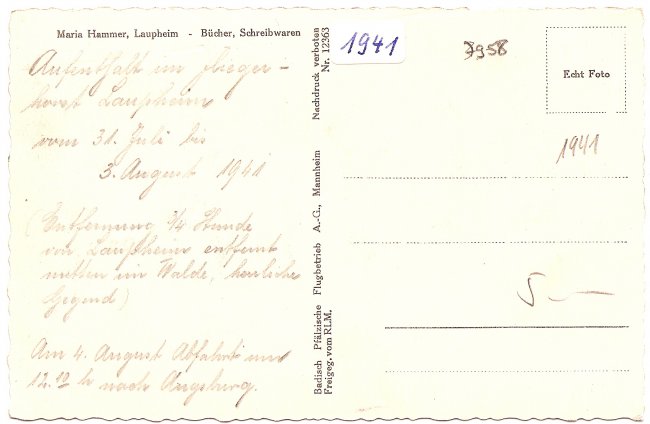 Maria Hammer, Laupheim - Bücher, Schreibwaren
Aufenthalt im Flieger-
horst Laupheim
vom 31. Juli bis
3. August 1941
(Entfernung 3/4 Stunde
von Laupheim entfernt
mitten im Walde, herrliche
Gegend)
Am 4. August Abfahrt um
12.12 h nach Augsburg.
Badisch Pfälzische Flugbetrieb A.-G., Mannheim Nachdruck verboten
Freigeg. vom RLM. Nr. 12363
1941
7958
Echt Foto
1941
5 —